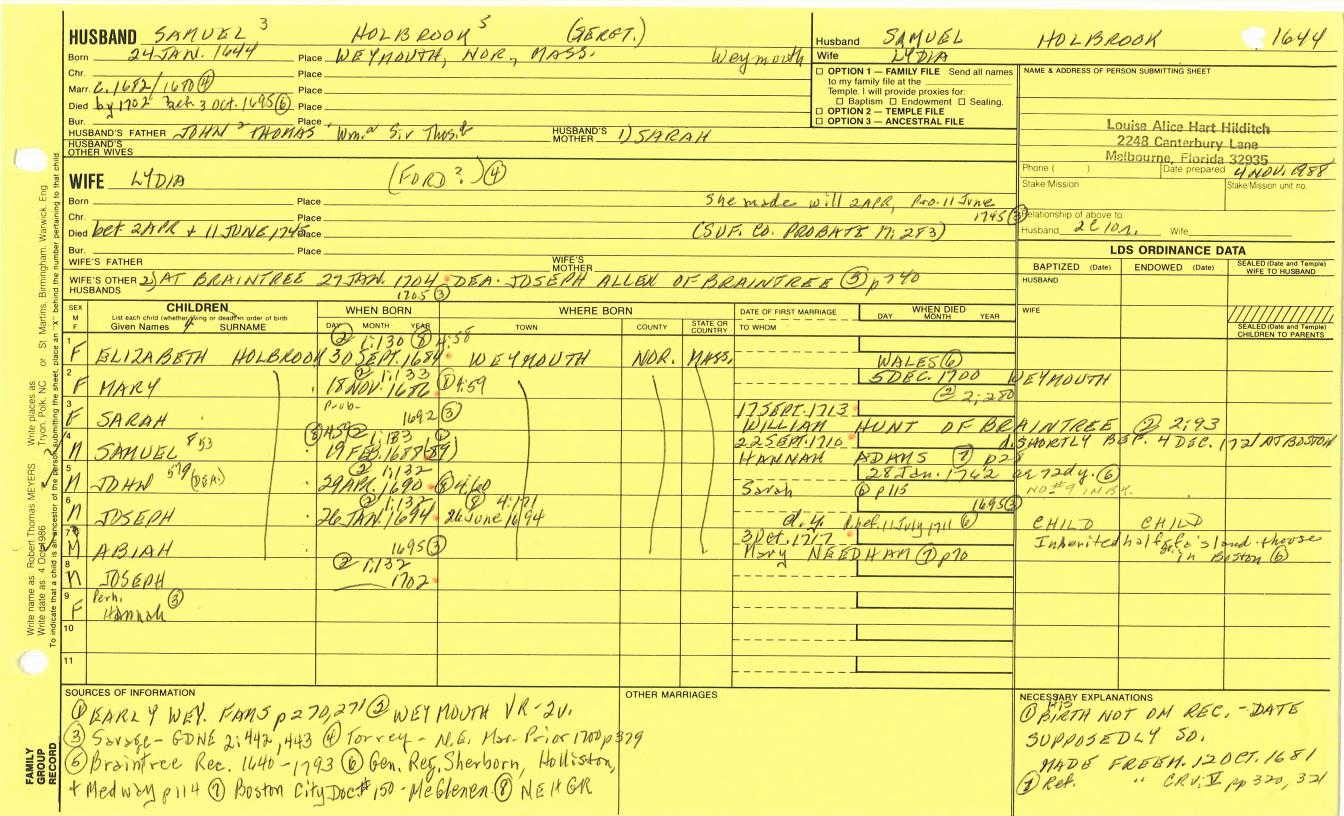 HUSBAND SAMUEL 3 HOLBROOK 5 (SERGT.)
Born 24 JAN. 1644 Place WEYMOUTH, NOR., MASS. Weymouth
Chr. Place
Marr. c. 1682/1670 (4) Place
Died by 1702 bef. 3 Oct. 1695 (6) Place
Bur. Place
HUSBAND'S FATHER JOHN 2 THOMAS 1 Wm. a Sir Thos. b HUSBAND'S MOTHER 1) SARAH
HUSBAND'S OTHER WIVES
WIFE LYDIA (FORD?) (4)
Born Place She made will 2 APR, Pro. 11 June
Chr. Place 1745 (3)
Died bet 2 APR + 11 JUNE, 1745 Place (SUF. CO. PROBATE 17: 283)
Bur. Place
WIFE'S FATHER WIFE'S MOTHER
WIFE'S OTHER HUSBANDS 2) AT BRAINTREE 27 JAN. 1704 DEA. JOSEPH ALLEN OF BRAINTREE (3) p 740
1705 (3)
Husband SAMUEL HOLBROOK 1644
Wife LYDIA
☐ OPTION 1 — FAMILY FILE Send all names
to my family file at the
Temple. I will provide proxies for:
☐ Baptism ☐ Endowment ☐ Sealing.
☐ OPTION 2 — TEMPLE FILE
☐ OPTION 3 — ANCESTRAL FILE
NAME & ADDRESS OF PERSON SUBMITTING SHEET
Louise Alice Hart Hilditch
2248 Canterbury Lane
Melbourne, Florida 32935
Phone ( ) Date prepared 4 NOV. 1988
Stake/Mission Stake/Mission unit no.
Relationship of above to
Husband Wife
LDS ORDINANCE DATA
BAPTIZED (Date) ENDOWED (Date) SEALED (Date and Temple) WIFE TO HUSBAND
HUSBAND
WIFE
SEALED (Date and Temple) CHILDREN TO PARENTS
SEX M F
CHILDREN
List each child (whether living or dead) in order of birth
Given Names SURNAME
WHEN BORN
DAY MONTH YEAR
WHERE BORN
TOWN COUNTY STATE OR COUNTRY
DATE OF FIRST MARRIAGE
TO WHOM
WHEN DIED
DAY MONTH YEAR
(2) 1:130 (8) 4:58
1 F ELIZABETH HOLBROOK 30 SEPT. 1684 WEYMOUTH NOR. MASS. WALES (6)
(2) 1:133
2 F MARY 18 NOV. 1686 (8) 4:59 5 DEC. 1700 WEYMOUTH
(2) 2:280
Prob-
3 F SARAH 1692 (3) 17 SEPT. 1713
WILLIAM HUNT OF BRAINTREE (2) 2:93
(8) 4:59 (2) 1:133
4 M SAMUEL 853 19 FEB. 1688 (89) 22 SEPT. 1710 d. SHORTLY BEF. 4 DEC. 1721 AT BOSTON
HANNAH ADAMS (7) p 28
(2) 1:132
5 M JOHN 579 (DEA.) 29 APR. 1690 (8) 4:60 28 Jan. 1742 ae 72 dy. (6)
Sarah (6) p 115
(2) 1:132 (8) 4:171 1695 (3)
6 M JOSEPH 26 JAN. 1694 26 June 1694 d. y. bef. 11 July 1711 (6) CHILD CHILD
7 M ABIAH 1695 (3) 3 Oct. 1717 Inherited half land + house
Mary NEEDHAM (7) p 70 in Boston (6)
(2) 1:132
8 M JOSEPH 1702
9 F Perh. Hannah (3)
10
11
SOURCES OF INFORMATION
(1) EARLY WEY. FAMS p 270, 271 (2) WEYMOUTH VR - 2v.
(3) Savage - GDNE 2; 442, 443 (4) Torrey - N.E. Mar. Prior 1700 p 379
(5) Braintree Rec. 1640-1793 (6) Gen. Reg. Sherborn, Holliston,
+ Medway p 114 (7) Boston City Doc # 150 - McGlenen (8) NEHGR
OTHER MARRIAGES
NECESSARY EXPLANATIONS
(1) HIS BIRTH NOT ON REC. - DATE
SUPPOSEDLY SO.
MADE FREEM. 12 OCT. 1681
Ref. " C.R. V. pp 320, 321
FAMILY GROUP RECORD
Write name as Robert Thomas MEYERS Write places as Tryon, Polk, NC or St Martins, Birmingham, Warwick, Eng.
Write date as 4 Oct 1986
To indicate that a child is an ancestor of the person submitting the sheet, place an "X" behind the number pertaining to that child